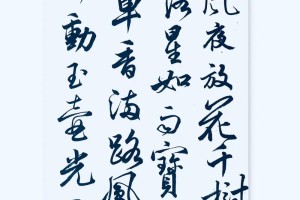 風夜放花千樹
落星如雨寶
車香滿路鳳
動玉壺光